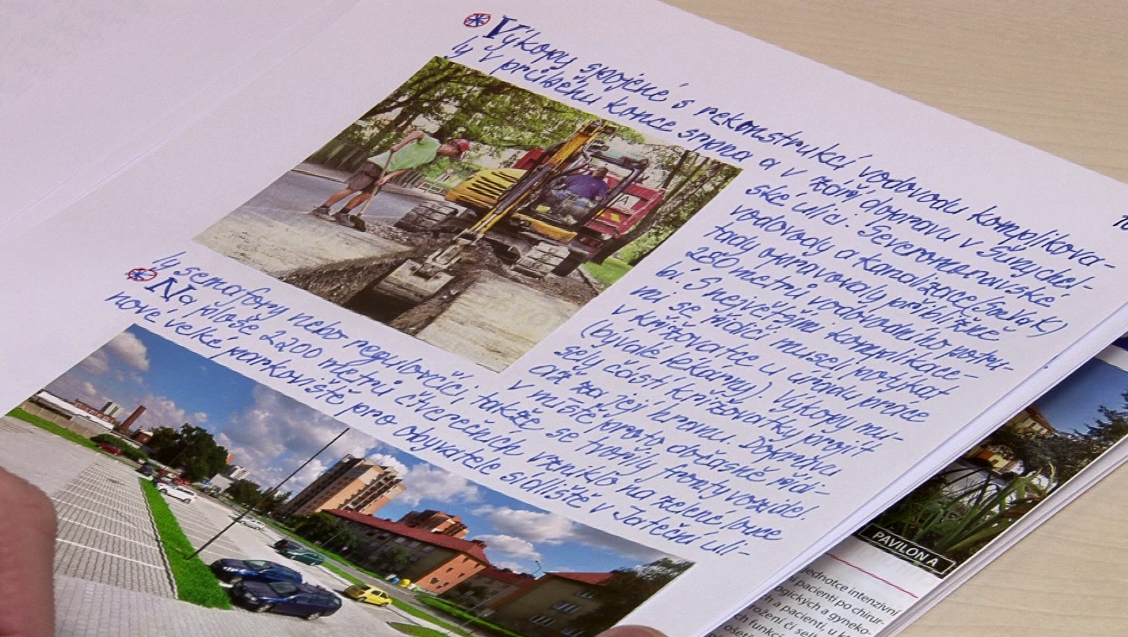 Výkopy spojené s rekonstrukcí vodovodu komplikova-
ly v průběhu konce srpna a v září dopravu v Suchdol-
ské ulici. Severomoravské
vodovody a kanalizace (SmVaK)
tady opravovaly přibližně
280 metrů vodovodního potru-
bí. S největšími komplikace-
mi se řidiči museli potýkat
v křižovatce u úřadu práce
(bývalé lékárny). Výkopy mu-
sely částí křižovatky projít
až za její hranu. Dopravu
v místě proto dočasně řídi-
ly semafory nebo regulovčíci, takže se tvořily fronty vozidel.
Na ploše 2200 metrů čtverečních vzniklo na zelené louce
nové velké parkoviště pro obyvatele sídliště v Jateční uli-
PAVILON A
jednotce intenzivní
pacienti po chirur-
gických a gyneko-
a pacienti, u k